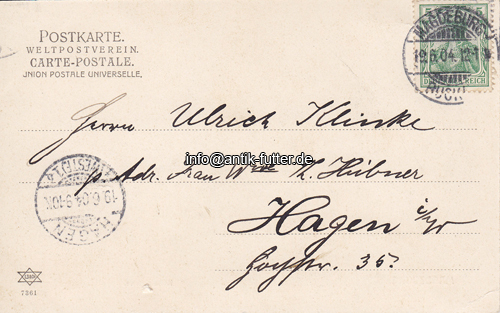 POSTKARTE.
WELTPOSTVEREIN.
CARTE-POSTALE.
UNION POSTALE UNIVERSELLE.
MAGDEBURG
19.6.04.12-1
5 5
REICH
Herrn Ulrich Klinke
info@antik-futter.de
p. Adr. Frau Wwe H. Hübner
Hagen i/W
Hochstr. 35.
19.6.04.9-10
HAGEN
7361